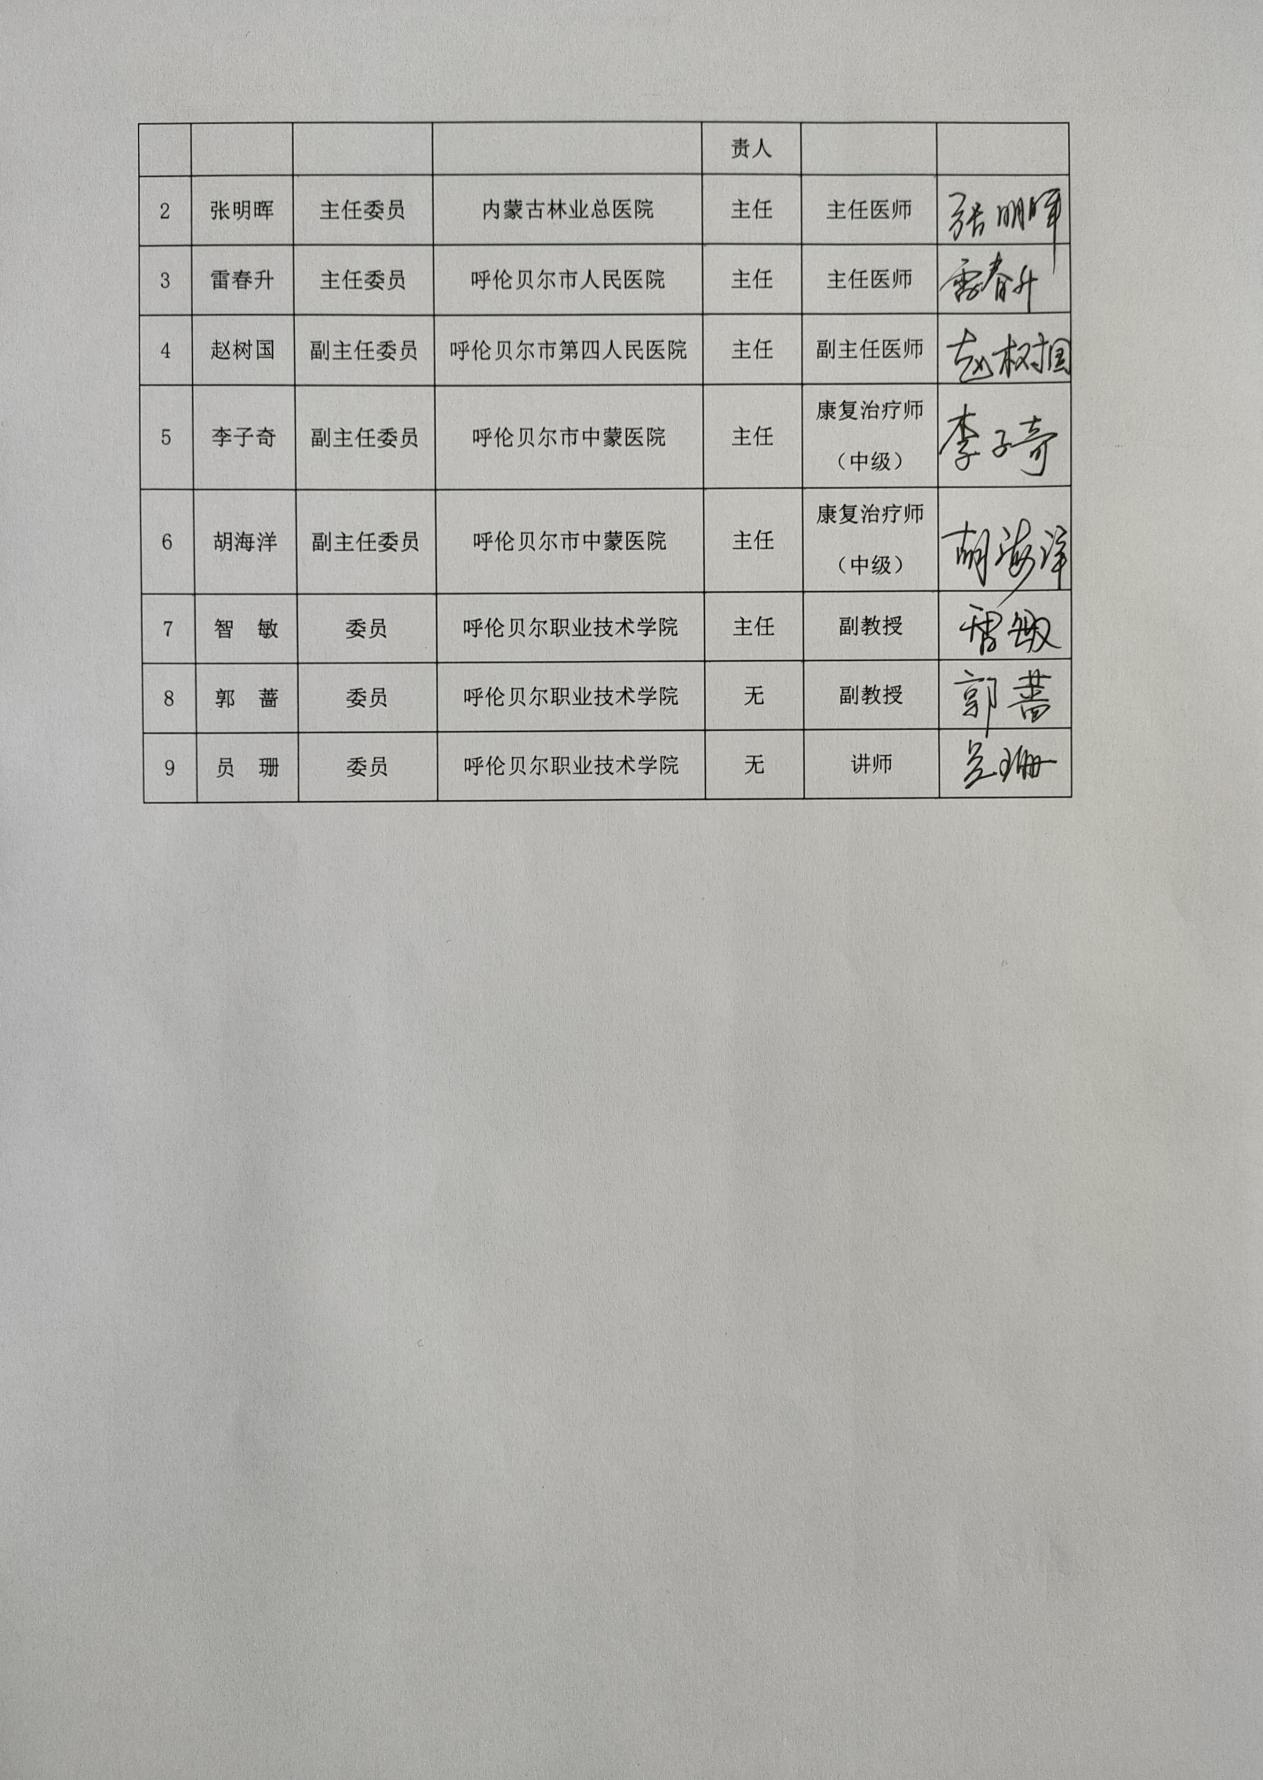 责人
2 张明晖 主任委员 内蒙古林业总医院 主任 主任医师 张明晖
3 雷春升 主任委员 呼伦贝尔市人民医院 主任 主任医师 雷春升
4 赵树国 副主任委员 呼伦贝尔市第四人民医院 主任 副主任医师 赵树国
5 李子奇 副主任委员 呼伦贝尔市中蒙医院 主任 康复治疗师（中级） 李子奇
6 胡海洋 副主任委员 呼伦贝尔市中蒙医院 主任 康复治疗师（中级） 胡海洋
7 智 敏 委员 呼伦贝尔职业技术学院 主任 副教授 智敏
8 郭 蔷 委员 呼伦贝尔职业技术学院 无 副教授 郭蔷
9 员 珊 委员 呼伦贝尔职业技术学院 无 讲师 员珊